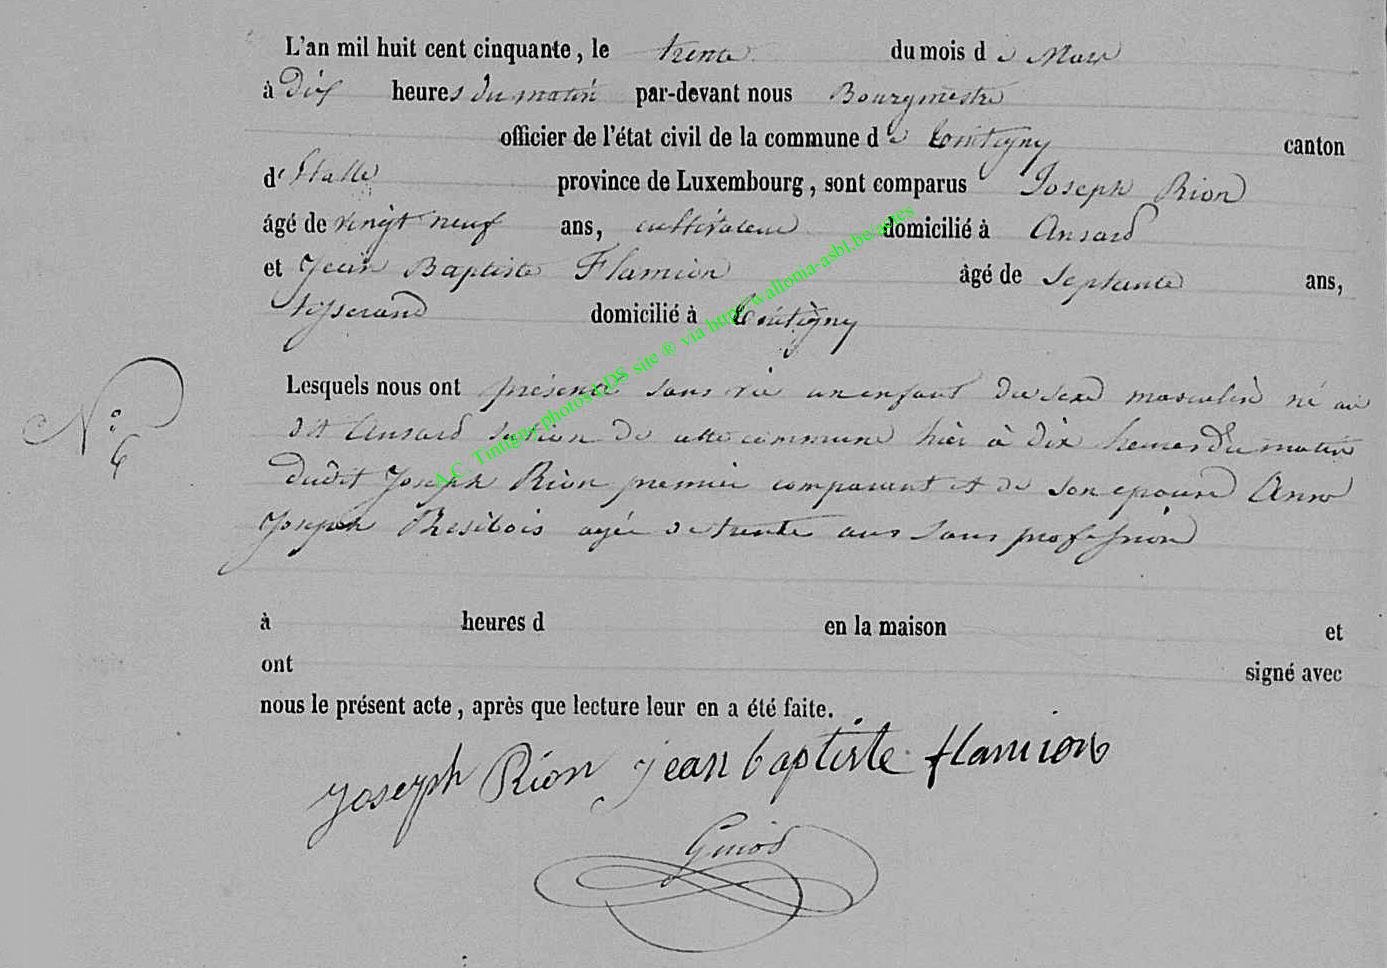 L'an mil huit cent cinquante, le trente du mois de Mars
à Dix heures du matin par-devant nous Bourgmestre
officier de l'état civil de la commune de Tintigny canton
d'Etalle province de Luxembourg, sont comparus Joseph Rion
âgé de vingt neuf ans, cultivateur domicilié à Ansard
et Jean Baptiste Flamion âgé de septante ans,
tisserand domicilié à Tintigny
Lesquels nous ont présenté sans vie un enfant du sexe masculin né au
dit Ansard section de cette commune hier à dix heures du matin
dudit Joseph Rion premier comparant et de son epouse Anne
Joseph Resibois agée de trente ans sans profession
N° 6
à heures d en la maison et
ont signé avec
nous le présent acte, après que lecture leur en a été faite.
Joseph Rion jean baptiste flamion
Guiod
A.C. Tintigny photos LDS site ® via http://wallonia-asbl.be/actes